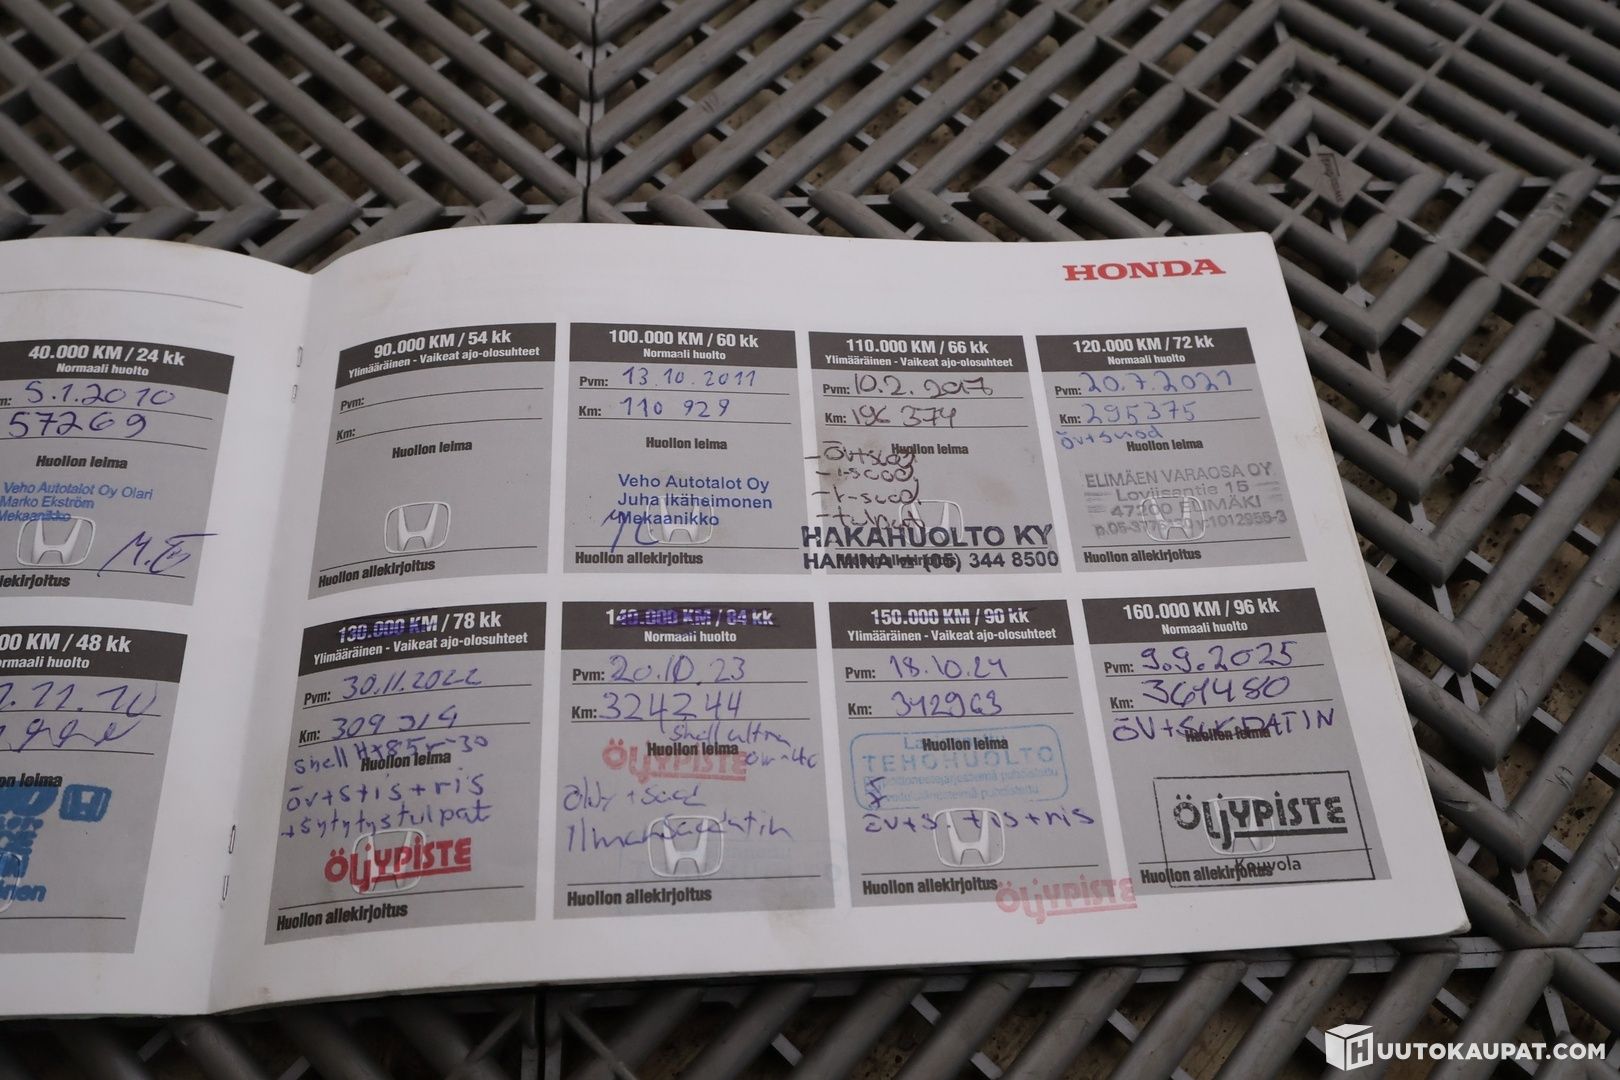 HONDA
40.000 KM / 24 kk
Normaali huolto
5.1.2010
57269
Huollon leima
Veho Autotalot Oy Olari
Marko Ekström
Mekaanikko
M.E
lekirjoitus
00 KM / 48 kk
ormaali huolto
on leima
90.000 KM / 54 kk
Ylimääräinen - Vaikeat ajo-olosuhteet
Pvm:
Km:
Huollon leima
Huollon allekirjoitus
100.000 KM / 60 kk
Normaali huolto
Pvm: 13.10.2011
Km: 110 929
Huollon leima
Veho Autotalot Oy
Juha Ikäheimonen
Mekaanikko
Huollon allekirjoitus
110.000 KM / 66 kk
Ylimääräinen - Vaikeat ajo-olosuhteet
Pvm: 10.2.2017
Km: 196 374
Huollon leima
- öv+suod
- i-suod
- r-suod
HAKAHUOLTO KY
HAMINA (05) 344 8500
120.000 KM / 72 kk
Normaali huolto
Pvm: 20.7.2021
Km: 295375
öv+suod
Huollon leima
ELIMÄEN VARAOSA OY
Loviisantie 15
47200 ELIMÄKI
Huollon allekirjoitus
130.000 KM / 78 kk
Ylimääräinen - Vaikeat ajo-olosuhteet
Pvm: 30.11.2022
Km: 309 314
shell Hx8 5w-30
Huollon leima
öv+s+is+ris
+sytytystulpat
ÖLJYPISTE
Huollon allekirjoitus
140.000 KM / 84 kk
Normaali huolto
Pvm: 20.10.23
Km: 324244
shell ultra
Huollon leima
ÖLJYPISTE
öljy + suod
Ilmansuodatin
Huollon allekirjoitus
150.000 KM / 90 kk
Ylimääräinen - Vaikeat ajo-olosuhteet
Pvm: 18.10.24
Km: 342963
Huollon leima
TEHOHUOLTO
öv+s.+is+ris
Huollon allekirjoitus
ÖLJYPISTE
160.000 KM / 96 kk
Normaali huolto
Pvm: 9.9.2025
Km: 361480
Huollon leima
ÖLJYPISTE
Kouvola
Huollon allekirjoitus
HUUTOKAUPAT.COM